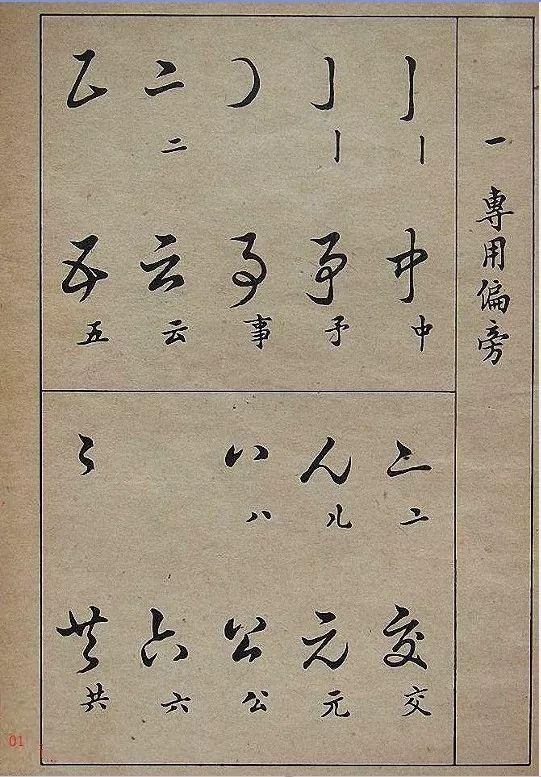 一 專用偏旁
丨 丨 中 中
亅 丨 矛 矛
事 事
二 二 云 云
五 五
亠 亠 交 交
儿 儿 元 元
八 八 公 公
六 六
共 共
01